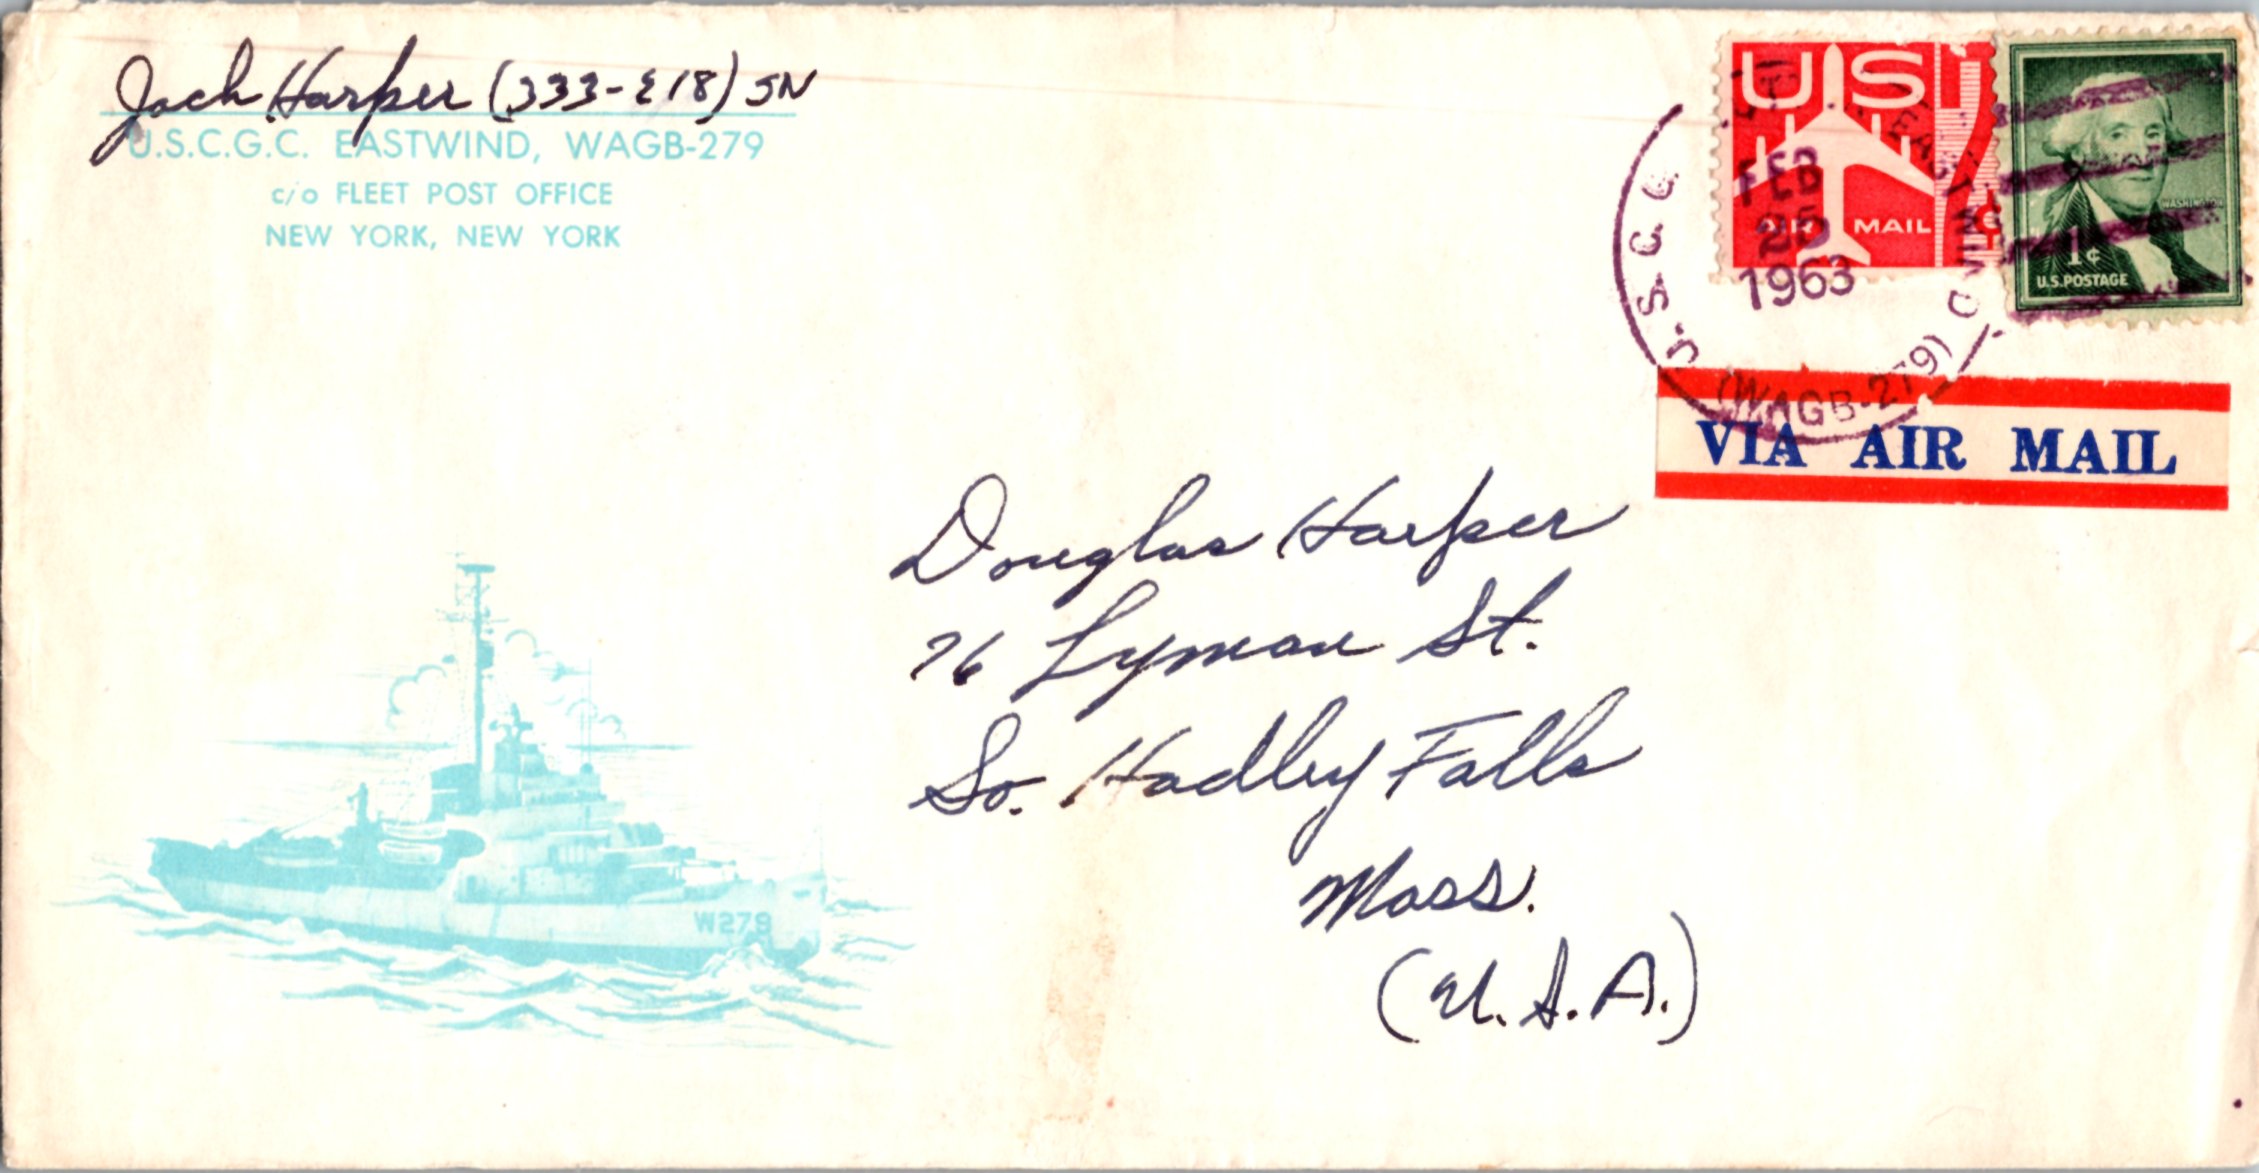 Jack Harper (333-218) SN
U.S.C.G.C. EASTWIND, WAGB-279
c/o FLEET POST OFFICE
NEW YORK, NEW YORK
US
AIR MAIL
¢
WASHINGTON
1¢
U.S. POSTAGE
U.S.C.G.C.
FEB
25
1963
(WAGB-279)
VIA AIR MAIL
Douglas Harper
76 Lyman St.
So. Hadley Falls
Mass.
(U.S.A.)
W279